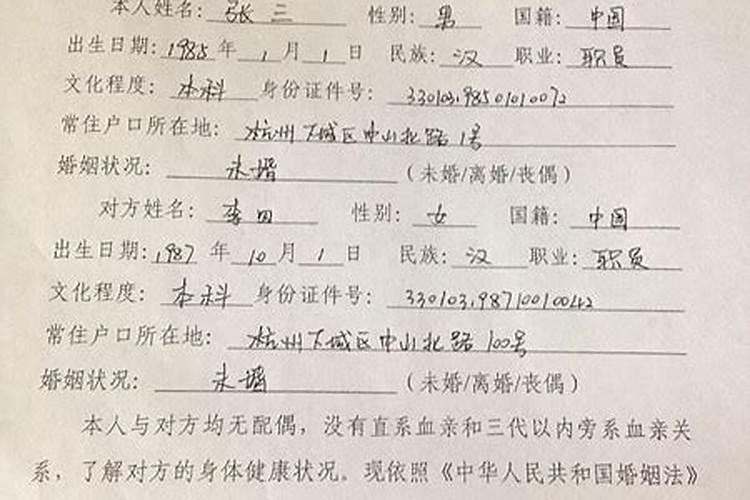 本人姓名：张三 性别：男 国籍：中国
出生日期：1985年1月1日 民族：汉 职业：职员
文化程度：本科 身份证件号：330103198501010072
常住户口所在地：杭州下城区中山北路1号
婚姻状况：未婚（未婚/离婚/丧偶）
对方姓名：李四 性别：女 国籍：中国
出生日期：1987年10月1日 民族：汉 职业：职员
文化程度：本科 身份证件号：330103198710010042
常住户口所在地：杭州下城区中山北路100号
婚姻状况：未婚（未婚/离婚/丧偶）
本人与对方均无配偶，没有直系血亲和三代以内旁系血亲关
系，了解对方的身体健康状况。现依照《中华人民共和国婚姻法》